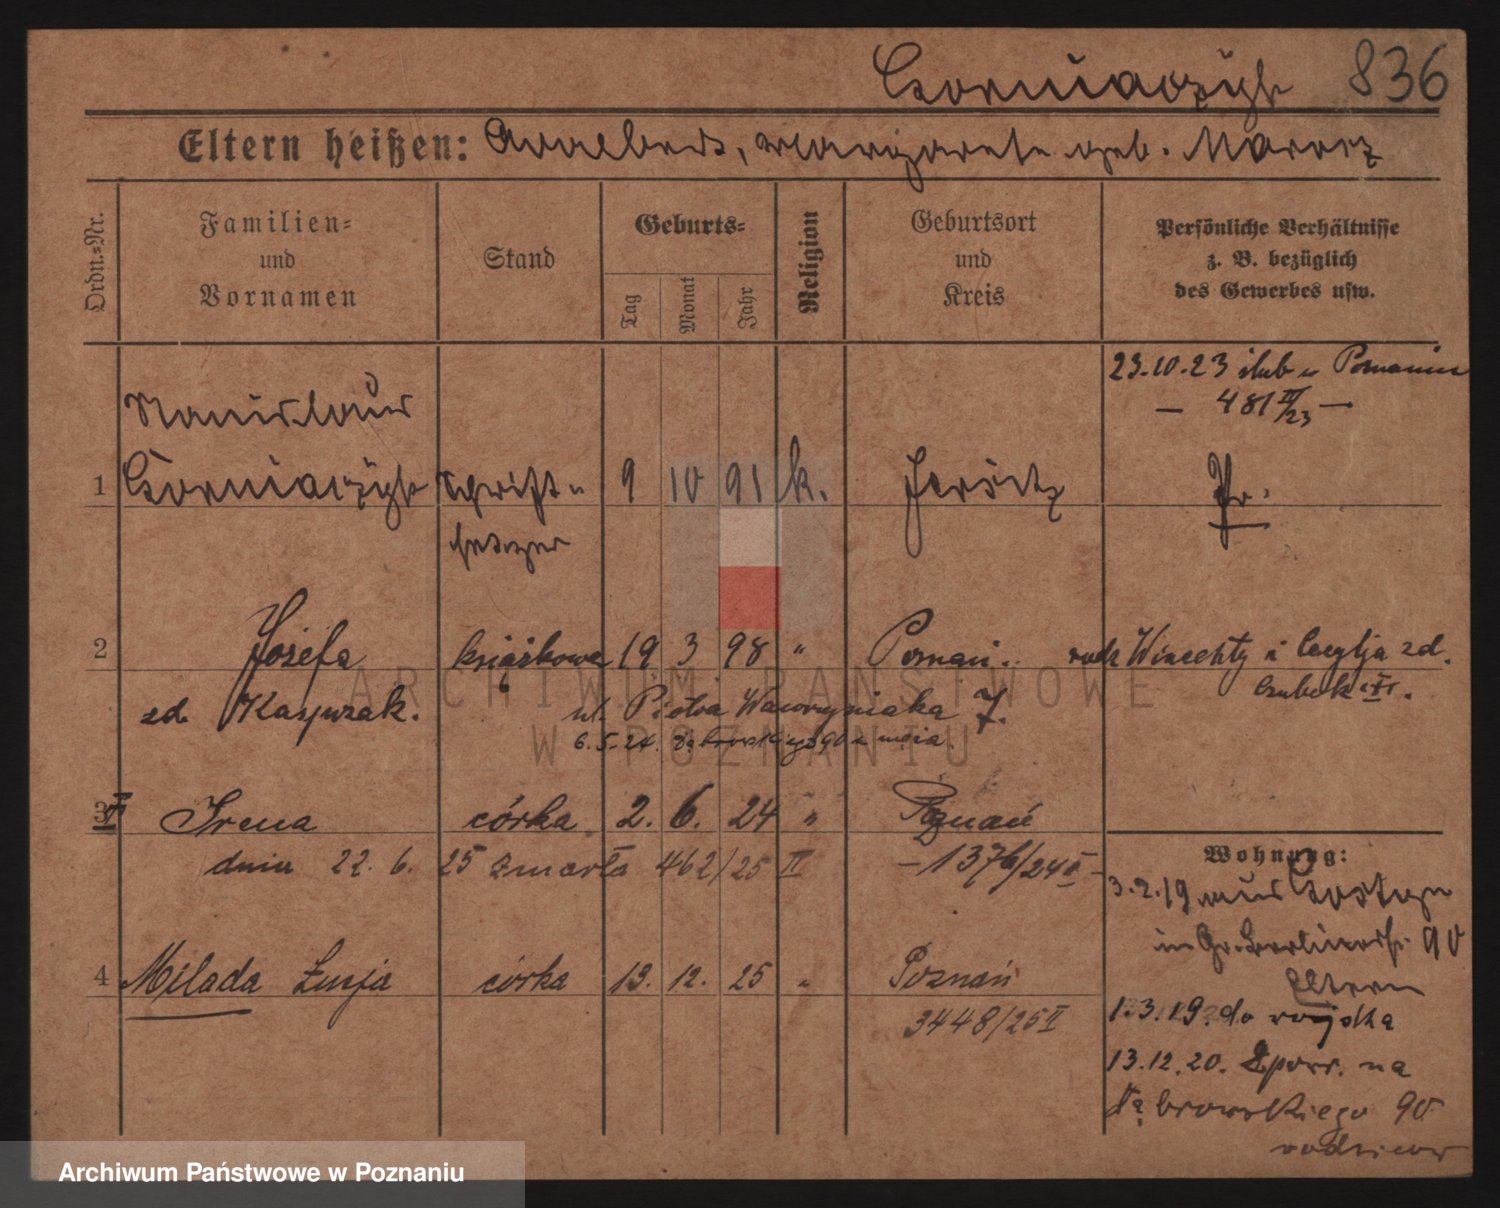 Czorniaczyk 836
Eltern heißen: Adalbert, Margarete geb.
Ordn.=Nr.
Familien=
und
Vornamen
Stand
Geburts=
Tag
Monat
Jahr
Religion
Geburtsort
und
Kreis
Persönliche Verhältnisse
z. B. bezüglich
des Gewerbes usw.
23.10.23 ślub w Poznaniu
— 481 II/23 —
Stanislaus
1 Czorniaczyk Schrift= 9 10 91 k. Jersitz Pr.
setzer
2 Józefa książkowa 19 3 98 " Poznań. rodz Wincenty i Cecylja zd.
zd. Kasprzak. ul. Piotra Wawrzyniaka 7.
6.5.24. Dąbrowskiego 90 u męża.
3 Irena córka 2. 6. 24 " Poznań
dniu 22. 6. 25 zmarła 462/25 II — 1376/24 I —
Wohnung:
3.2.19 aus
in Gr. Berlinerstr. 90
Eltern
4 Milada Łucja córka 13. 12. 25 " Poznań
3448/25 II
1.3.19. do wojska
13.12.20. Zpow. na
Dąbrowskiego 90
rodziców
ARCHIWUM PAŃSTWOWE
W POZNANIU
Archiwum Państwowe w Poznaniu